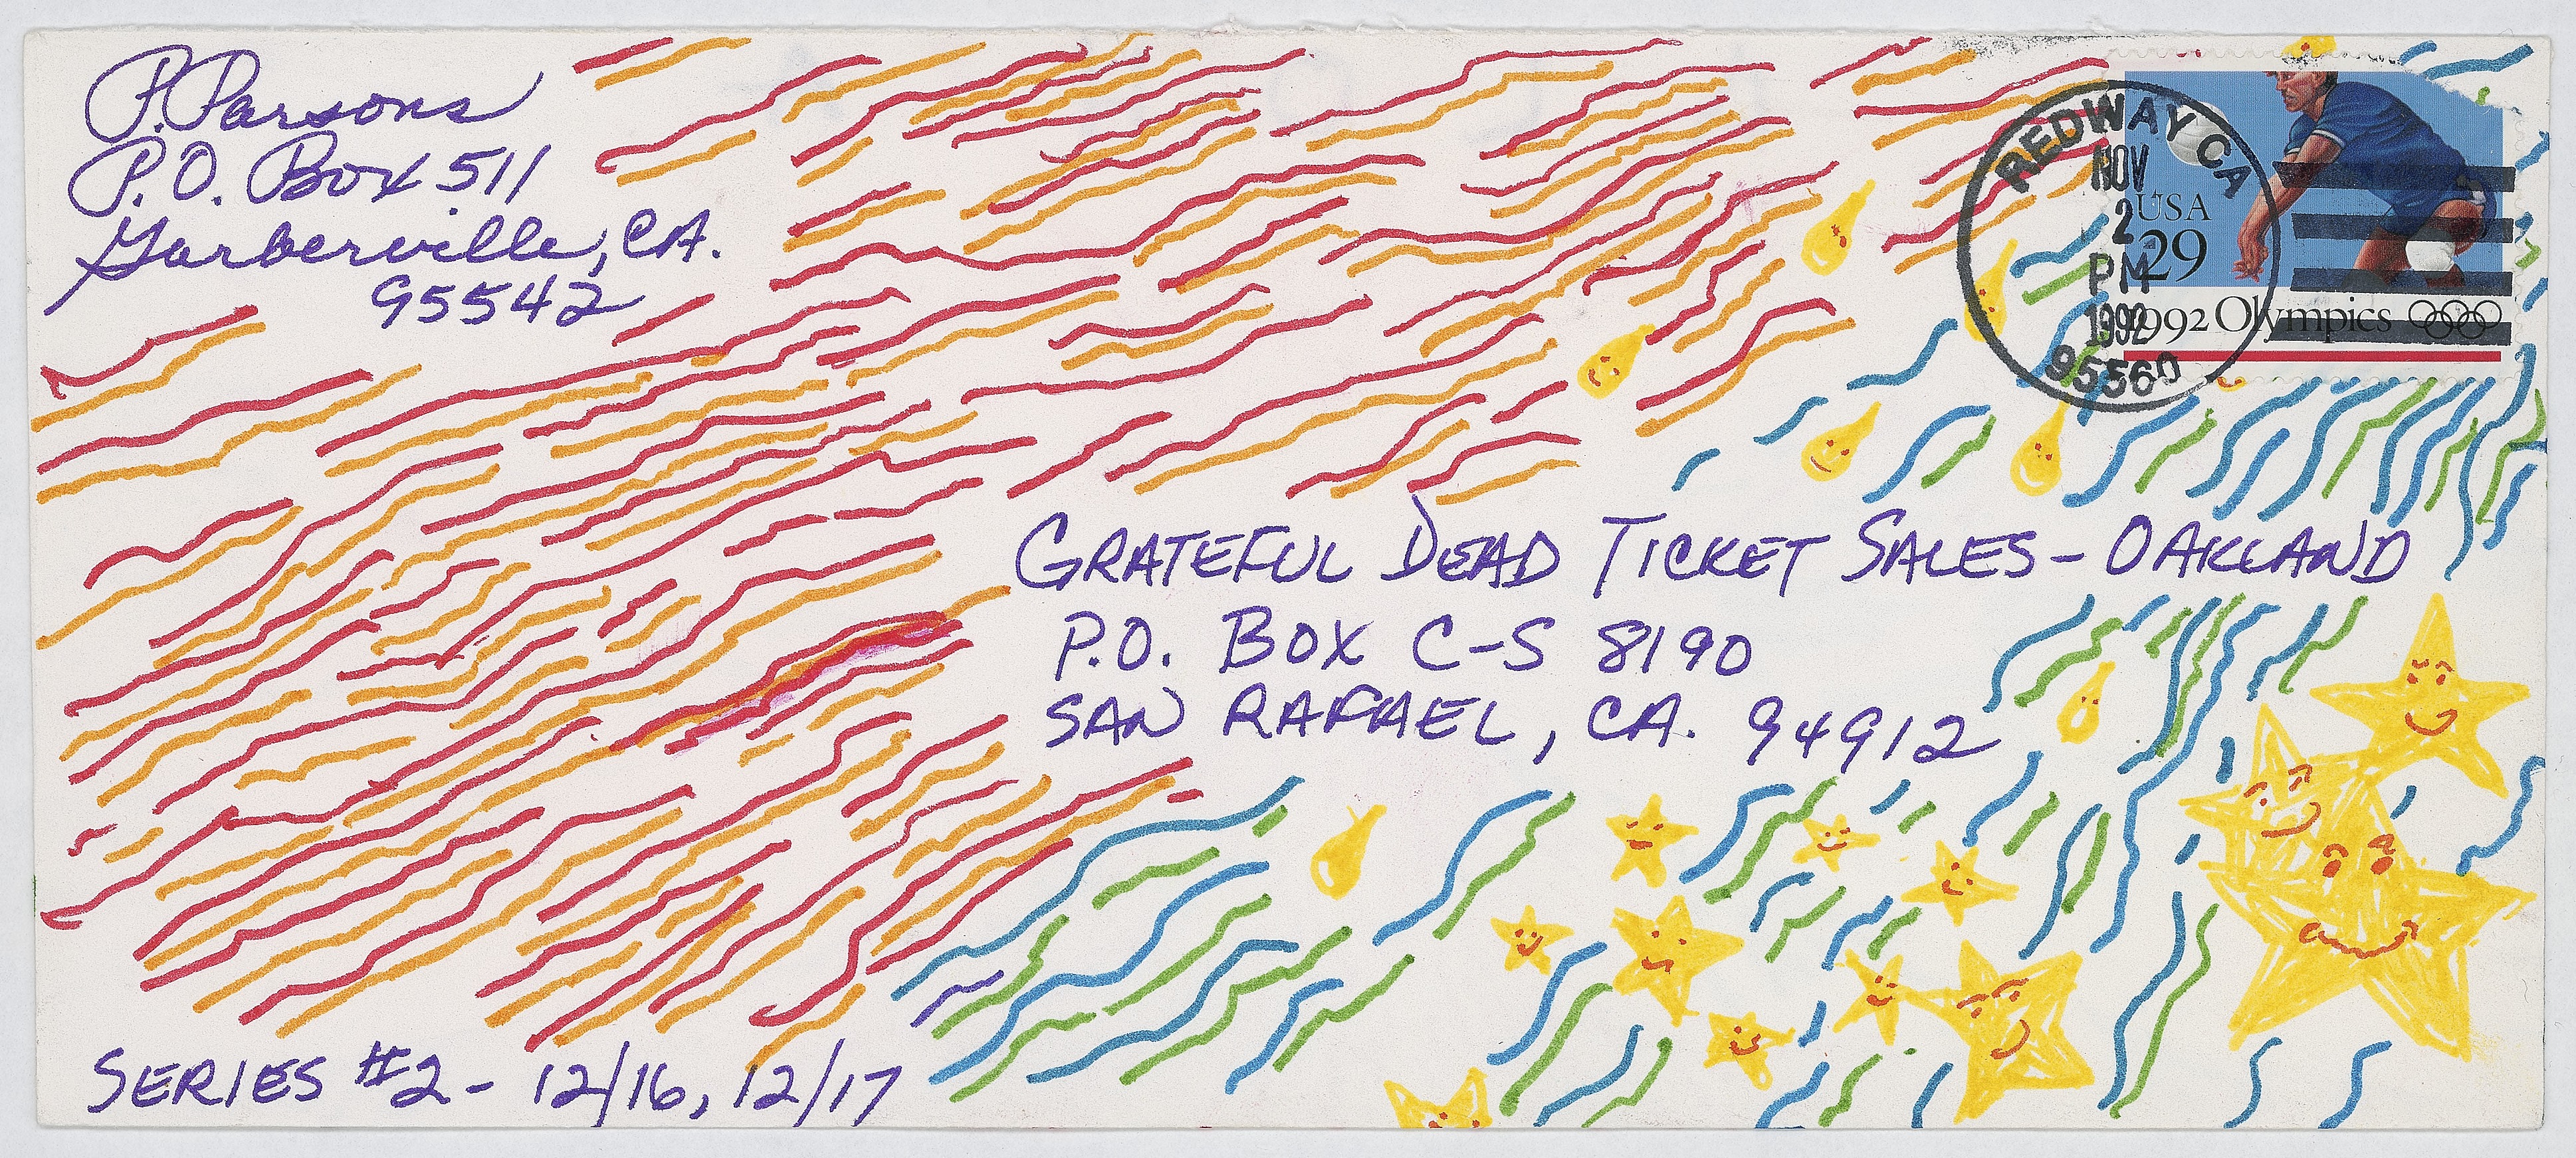 P. Parsons
P.O. Box 511
Garberville, CA.
95542
REDWAY CA
NOV
2
PM
1992
95560
USA
29
1992 Olympics
GRATEFUL DEAD TICKET SALES - OAKLAND
P.O. BOX C-S 8190
SAN RAFAEL, CA. 94912
SERIES #2 - 12/16, 12/17